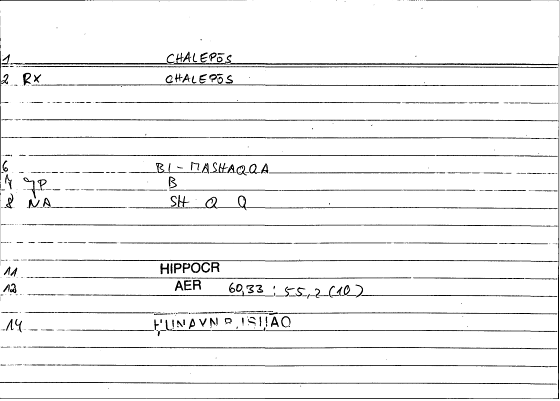 1 CHALEPŌS
2 RX CHALEPŌS
6 BI-MASHAQQA
7 JP B
8 NA SH Q Q
11 HIPPOCR
12 AER 60,33 : 55,2 (10)
14